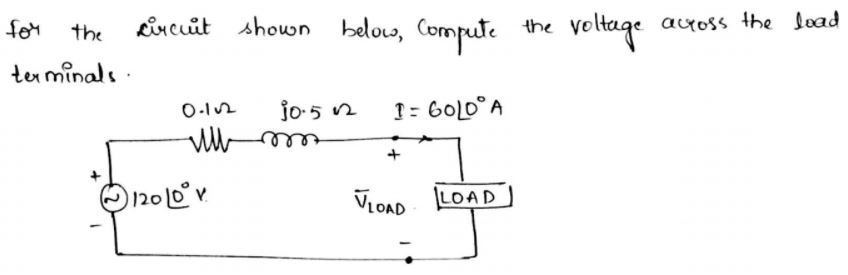 for the circuit shown below, Compute the voltage across the load
terminals.
0.1Ω j0.5 Ω I = 60⌊0° A
+
+
120⌊0° V.
V̄LOAD
LOAD
-
-